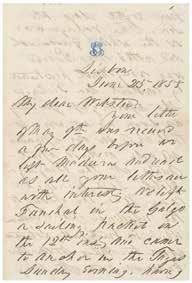 Lisbon
June 25 1855
My dear Webster
Your letter
of May 9th was received
a few days before we
left Madeira and was
as all your letters are
with interest. We left
Funchal in the Galgo
a sailing packet on
the 12th inst. and came
to anchor in the Tagus
Sunday evening, having